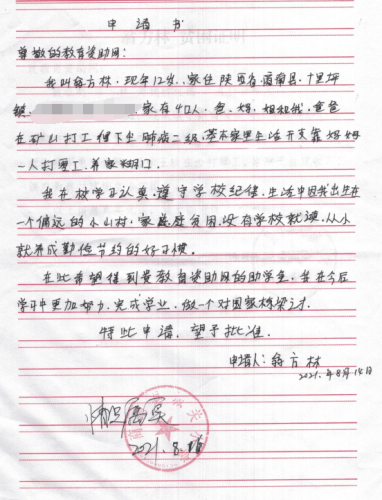 申请书
尊敬的教育资助网：
我叫翁方林，现年12岁，家住陕西省商南县，十里坪
镇，家有4口人，爸，妈，姐和我，爸爸
在矿山打工得下尘肺病二级，基本家里生活开支靠妈妈
一人打零工，养家糊口。
我在校学习认真，遵守学校纪律，生活中因我出生在
一个偏远的小山村，家庭贫困，没有学校就读，从小
就养成勤俭节约的好习惯。
在此希望得到贵教育资助网的助学金，我在今后
学习中更加努力，完成学业，做一个对国家栋梁才。
特此申请，望予批准。
申请人：翁方林
2021.年8月16日
情况属实
2021.8.16